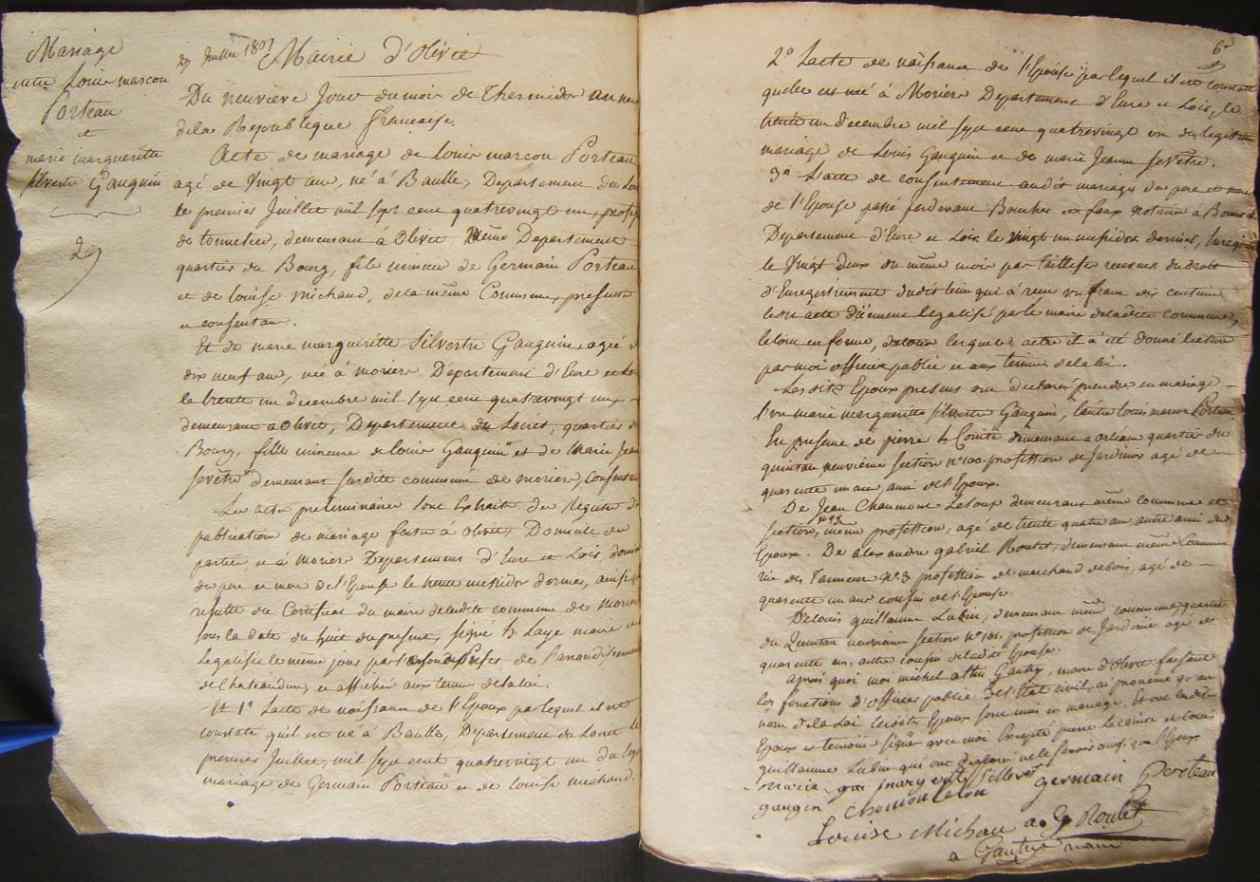 Mariage
entre Louis marcou
Porteau
et
marie margueritte
silvestre Gauguin
29
Juillet 1801
Mairie d'Olivet
Du neuvieme Jour du mois de Thermidor an neuf
de la Republique française.
Acte de mariage de Louis marcou Porteau
agé de Vingt ans, né à Baulle, Departement du Loiret
le premier Juillet mil sept cent quatrevingt un, profession
de tonnelier, demeurant à Olivet, même Departement
quartier du Bourg, fils mineur de Germain Porteau
et de louise michaud, de la même Commune, presents
et consentans.
Et de marie margueritte Silvestre Gauguin, agée de
dix neuf ans, née à moriers Departement d'Eure et Loir
le trente un decembre mil sept cent quatrevingt un
demeurant a Olivet, Departement du Loiret, quartier du
Bourg, fille mineure de louis Gauguin et de Marie Jeanne
sevêtre demeurant susditte commune de moriers, consentans
Les actes preliminaires sont Extraits des Registres de
publication de mariage faitte à Olivet, Domicile des
parties, et à moriers Departement d'Eure et Loir, domicile
des pere et mere de l'Epouse le trente messidor dernier, ainsi qu'il
resulte du Certificat du maire de laditte commune de moriers
sous la date du huit du present, signé laye maire et
Legalisé le même jour par le sousprefet de
de Chateaudun, et affichés aux termes de la loi.
Et 1° Lacte de naissance de l'Epoux par lequel il est
constaté quil est né à Baulle, Departement du Loiret le
premier Juillet, mil sept cent quatrevingt un du legitime
mariage de Germain Porteau et de louise michaud.
2° Lacte de naissance de l'Epouse par lequel il est constaté
quelle est née à Moriers Departement d'Eure et Loir, le
trente un decembre mil sept cent quatrevingt un du legitime
mariage de Louis Gauguin et de marie Jeanne sevêtre.
3° Lacte de consentement audit mariage des pere et mere
de l'Epouse passé pardevant Boucher notaire à
Departement d'Eure et Loir le vingt un messidor dernier, Enregistré
le Vingt deux du même mois par receveur du droit
d'Enregistrement dudit lieu qui à reçu un franc dix centimes
lesdits acte duement legalisé par le maire de laditte commune,
le tout en forme, de tous lesquels actes il à été donné lecture
par moi officier public et aux termes de la loi.
Lesdits Epoux presents ont declarés prendre en mariage
l'une marie marguerite silvestre Gauguin, lautre louis marcou Porteau
En presence de pierre le Comte demeurant a orleans quartier du
quinton neuvieme section n° 100. profession de Jardinier agé de
quarente un ans ami de l'Epoux.
De Jean Chaumont Leloux demeurant même commune et
section, n° 93 même profession, agé de trente quatre ans autre ami des
Epoux. De alexandre gabriel Roulet, demeurant même commune
rüe des Tanneurs n° 3 profession de marchand debois, agé de
quarente un ans cousin de l'Epouse.
De louis guillaume Lubin, demeurant même commune quartier
du Quinton neuvieme section n° 101. profession de Jardinier agé de
quarente un, autre cousin de laditte Epouse.
après quoi moi michel Gautry, maire d'Olivet faisant
les fonctions d'officier public de l'Etat civil, ai prononcé qu'au
nom de la Loi lesdits Epoux sont unis en mariage, Et ont lesdits
Epoux et temoins signés avec moi Excepté pierre Lecomte et louis
guillaume Lubin qui ont declaré ne le savoir
gaugin chomon leloux germain Porteau
Louise Michau a. g Roulet
a Gautry maire